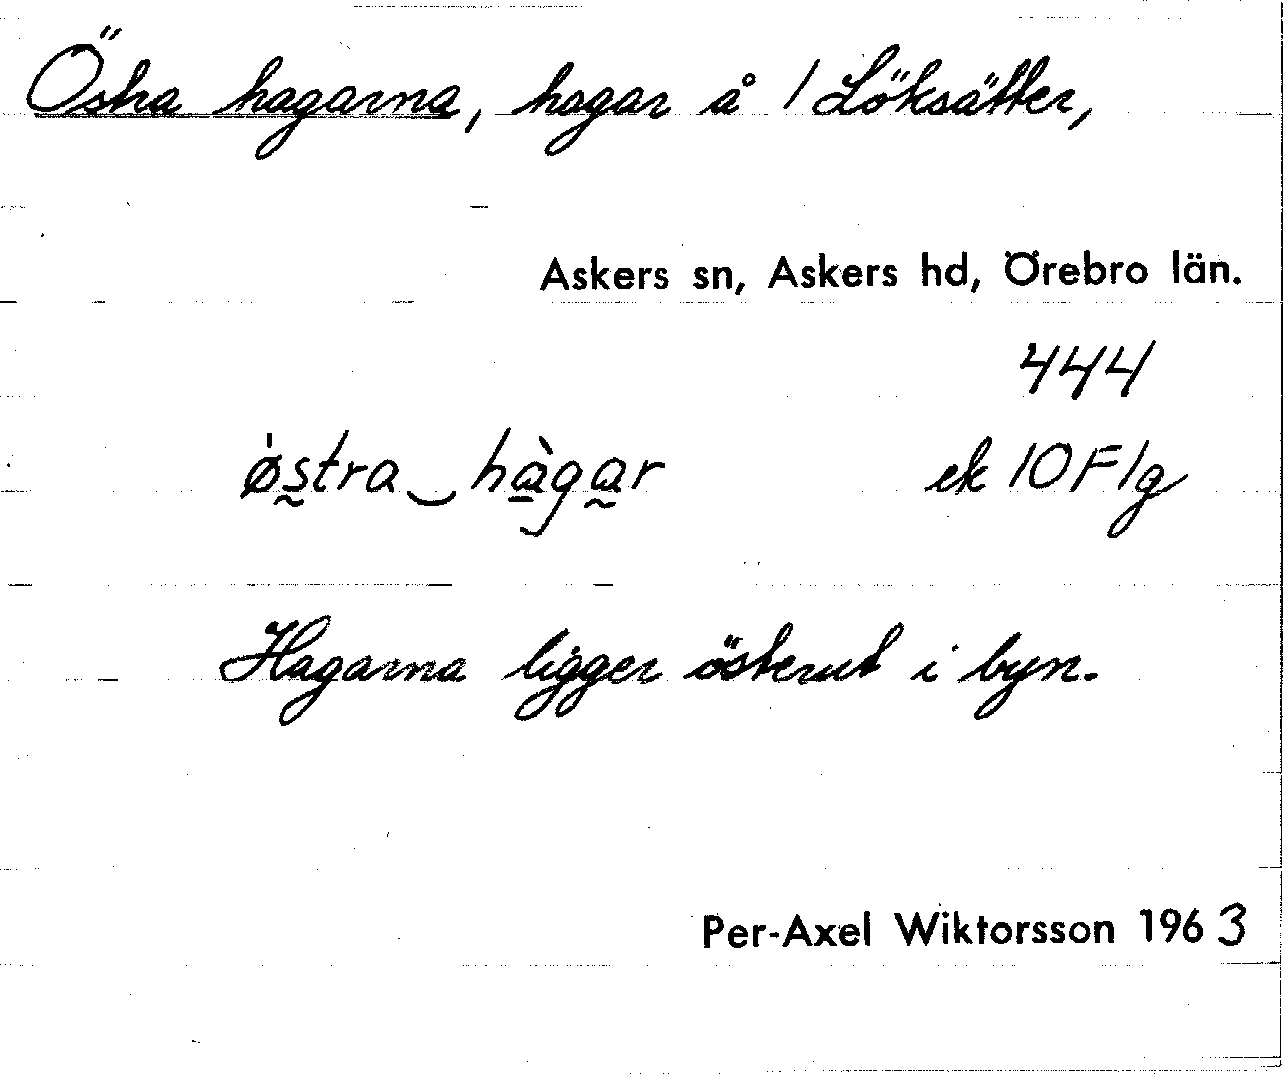 Östra hagarna, hagar å 1 Löksätter,
Askers sn, Askers hd, Örebro län.
444
østra‿hàgar ek 10F1g
Hagarna ligger österut i byn.
Per-Axel Wiktorsson 1963